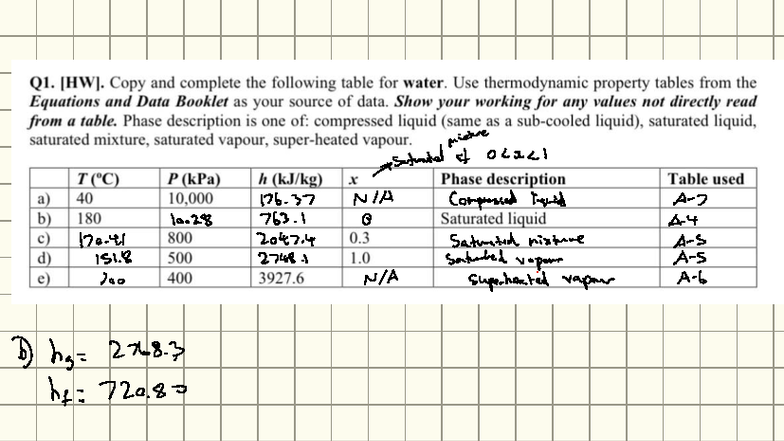 Q1. [HW]. Copy and complete the following table for water. Use thermodynamic property tables from the
Equations and Data Booklet as your source of data. Show your working for any values not directly read
from a table. Phase description is one of: compressed liquid (same as a sub-cooled liquid), saturated liquid,
saturated mixture, saturated vapour, super-heated vapour.
mixture
Saturated if 0<x<1
T (°C) P (kPa) h (kJ/kg) x Phase description Table used
a) 40 10,000 176.37 N/A Compressed liquid A-7
b) 180 10.28 763.1 0 Saturated liquid A-4
c) 170.41 800 2047.4 0.3 Saturated mixture A-5
d) 151.8 500 2748.1 1.0 Saturated vapour A-5
e) 400 3927.6 N/A Superheated vapour A-6
b) hg =
hf = 720.8